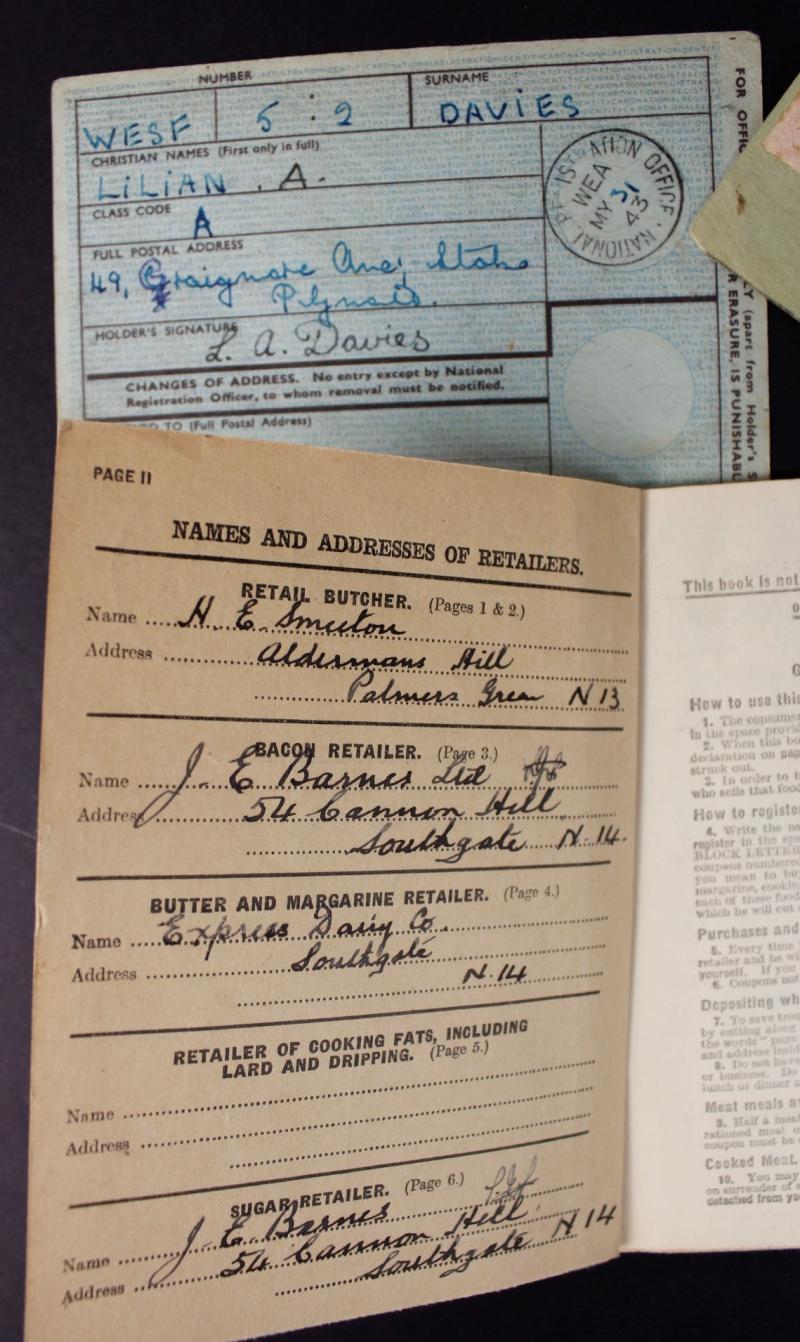 NUMBER
SURNAME
WESF 5 : 2
DAVIES
CHRISTIAN NAMES (First only in full)
LILIAN . A.
CLASS CODE
A
FULL POSTAL ADDRESS
49,
HOLDER'S SIGNATURE
L. A. Davies
CHANGES OF ADDRESS. No entry except by National
Registration Officer, to whom removal must be notified.
TO (Full Postal Address)
NATIONAL REGISTRATION OFFICE
WEA
MY 31
43
FOR
(apart from Holder's
ERASURE, IS PUNISHABL
PAGE 11
NAMES AND ADDRESSES OF RETAILERS.
RETAIL BUTCHER. (Pages 1 & 2.)
Name H. E. Smeeton
Address Aldermans Hill
Palmers Green N 13
BACON RETAILER. (Page 3.)
Name J. E Barnes Ltd
Address 54 Cannon Hill
Southgate N. 14.
BUTTER AND MARGARINE RETAILER. (Page 4.)
Name Express Dairy Co.
Address Southgate
N. 14
RETAILER OF COOKING FATS, INCLUDING
LARD AND DRIPPING. (Page 5.)
Name
Address
SUGAR RETAILER. (Page 6.)
Name J. E. Barnes
Address 54 Cannon Hill
Southgate N 14
This book is not
How to use this
1. The consume
in the space provi
2. When this bo
declaration on pag
struck out.
3. In order to b
who sells that food
How to registe
4. Write the na
register in the sp
BLOCK LETTER
coupons numbere
you mean to bu
margarine, cookin
each of these food
which he will cut
Purchases and
5. Every time
retailer and he wi
yourself. If you
6. Coupons not
Depositing wh
7. To save trou
by cutting along
the words " page
and address insid
8. Do not have
or business. Do
lunch or dinner a
Meat meals a
9. Half a meat
rationed meat o
coupon must be
Cooked Meat.
10. You may
on surrender of
detached from yo